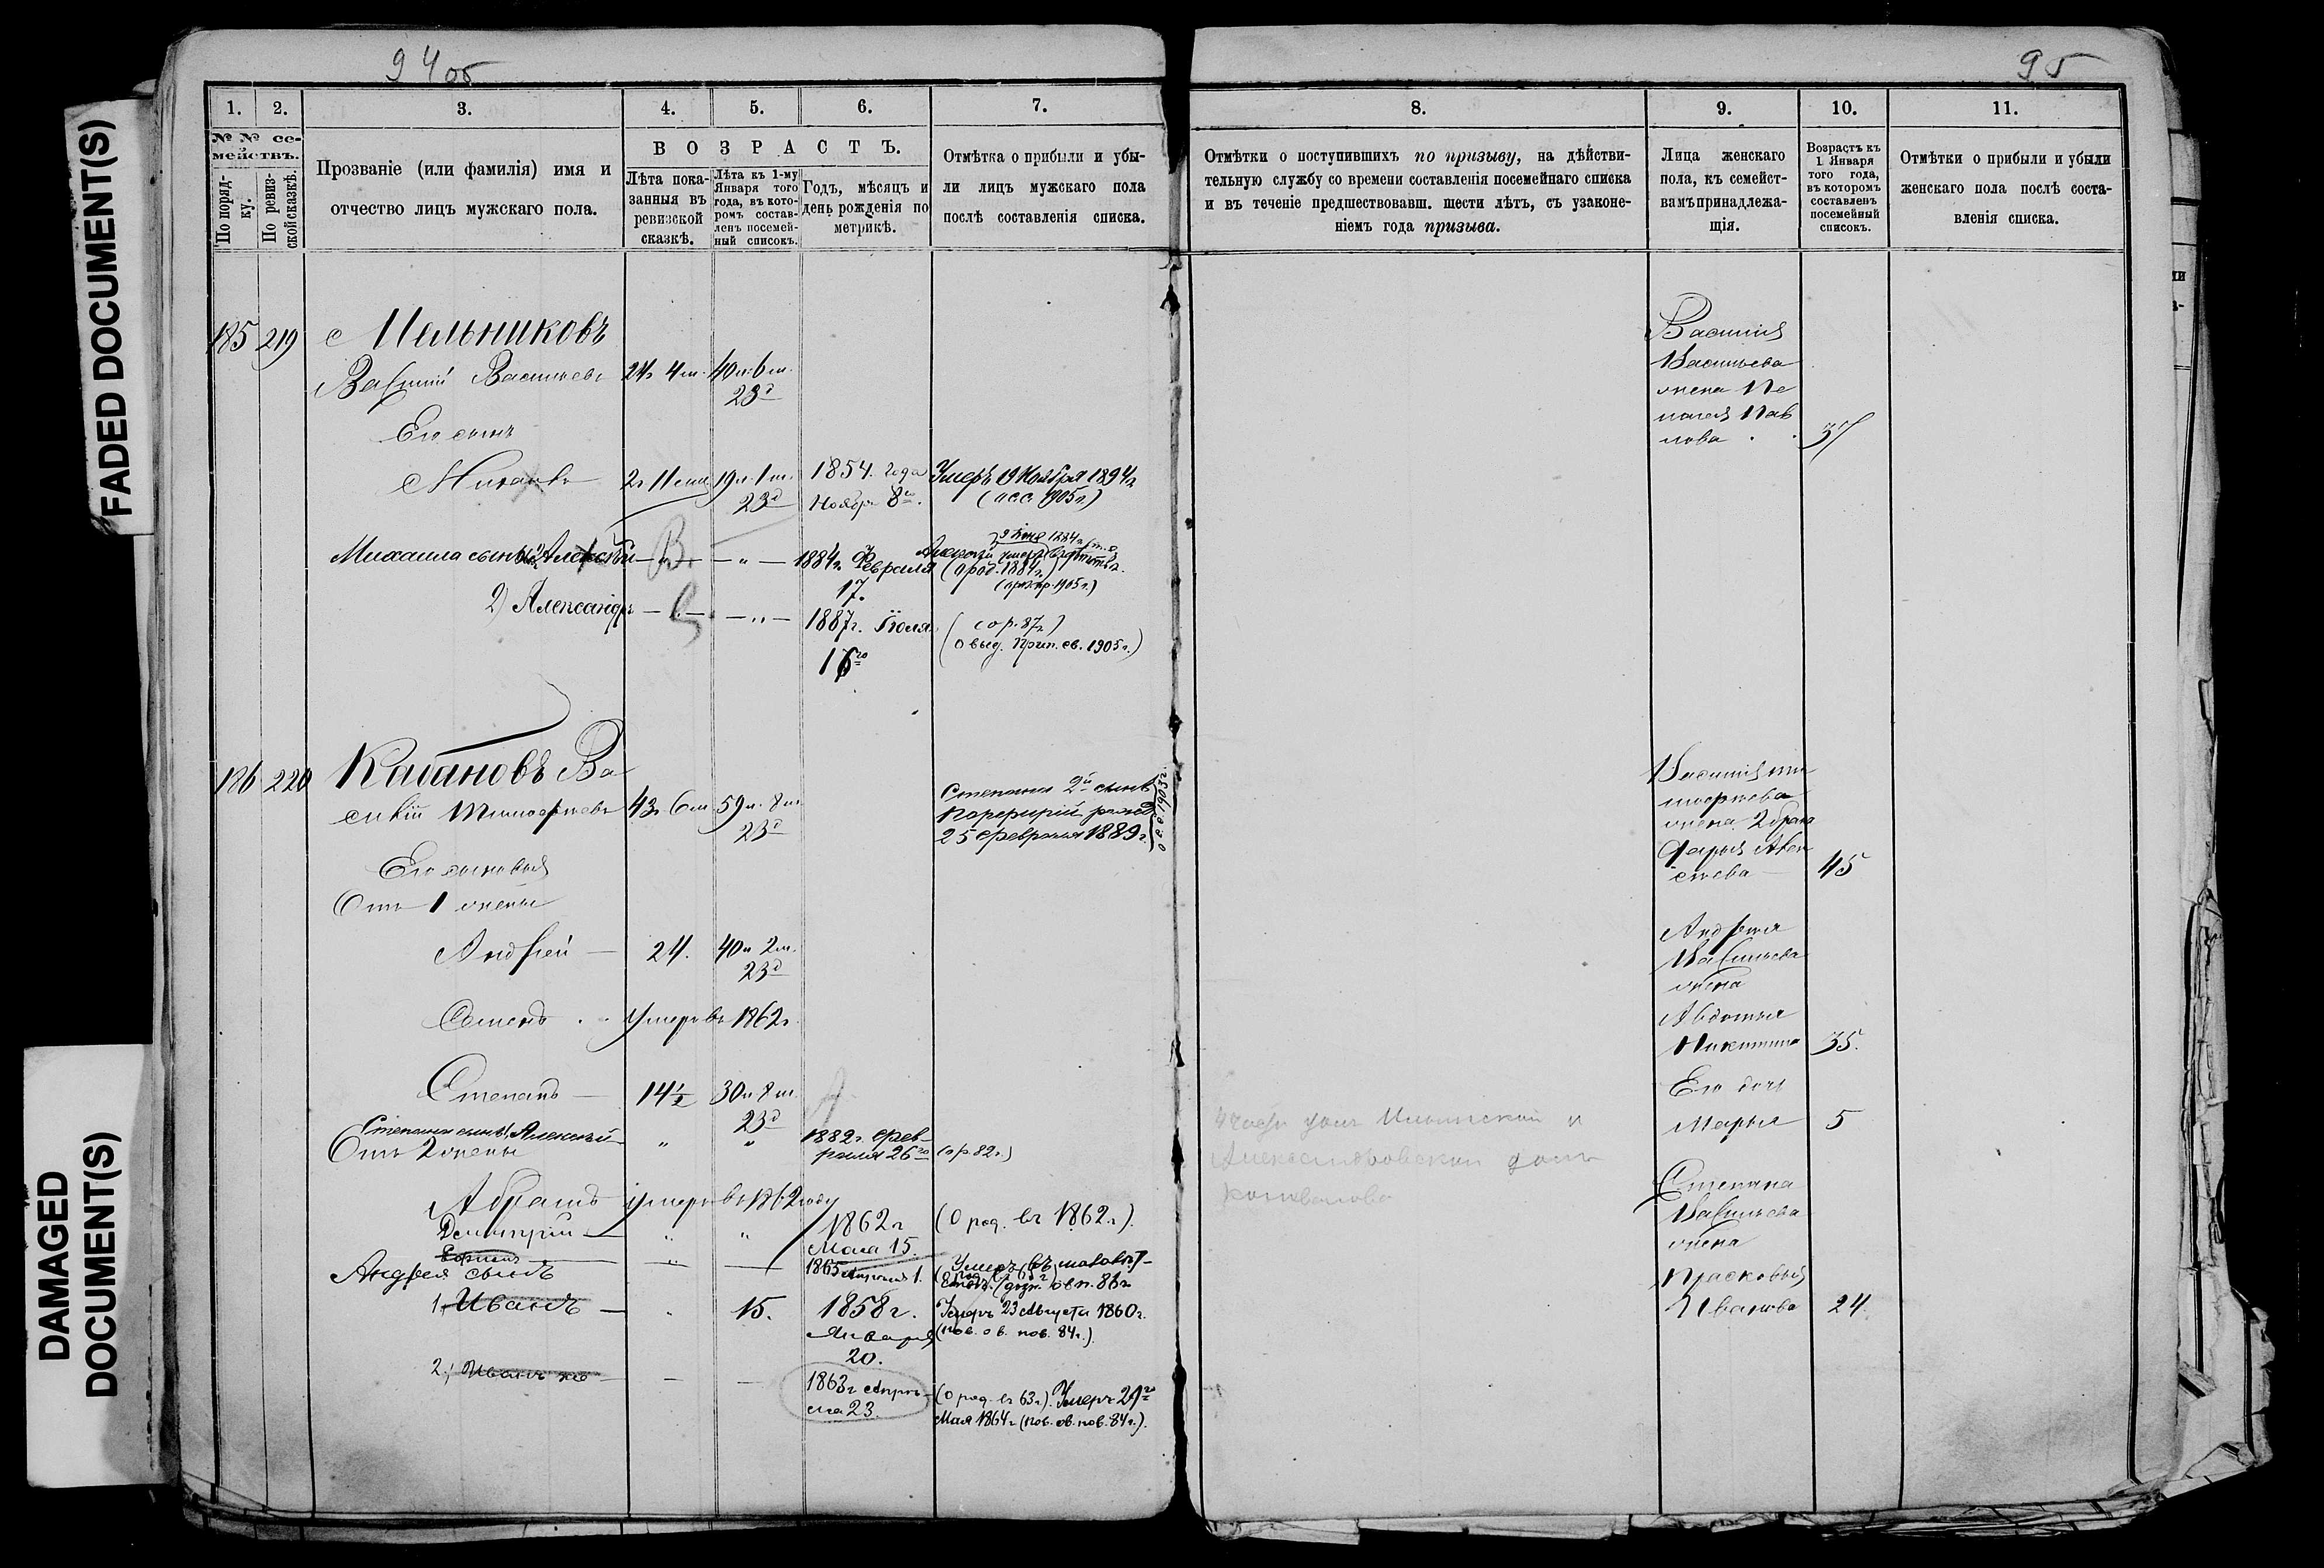 FADED DOCUMENT(S)
DAMAGED
DOCUMENT(S)
94 об
1.
2.
3.
4.
5.
6.
7.
№ № се-
мействъ.
По поряд-
ку.
По ревиз-
ской сказкѣ.
Прозваніе (или фамилія) имя и
отчество лицъ мужскаго пола.
ВОЗРАСТЪ.
Лѣта пока-
занныя въ
ревизской
сказкѣ.
Лѣта къ 1-му
Января того
года, въ кото-
ромъ состав-
ленъ посемей-
ный списокъ.
Годъ, мѣсяцъ и
день рожденія по
метрикѣ.
Отмѣтка о прибыли и убы-
ли лицъ мужскаго пола
послѣ составленія списка.
185 219 Мельниковъ
Василій Васильевъ 24 4 м. 40 л. 6 м.
23 д
Его сынъ
2 г 11 м 19 л. 1 м. 1854. года Умеръ 19 Ноября 1894 г
23 д Ноября 8 го. 1905 г)
Михаила сынъ Алексѣй — В. — " — 1884 г. Февраля
17.
Алексѣй умеръ
(о род. 1884 г.)
1905 г.)
2) Александръ — — " — 1887 г. Іюля
16 го
(о р. 87 г)
(о выд. Прип. св. 1905 г.)
186 220 Кабановъ Ва
силій Тимофѣевъ 43 6 м 59 л. 8 м
23 д
Степана 2й сынъ
Порфирій рожд
25 Февраля 1889 г.
1905 г.
Его сыновья
Отъ 1 жены
Андрей — 24. 40 л 2 м.
23 д
Семенъ Умеръ въ 1862 г.
Степанъ — 14 1/2 30 л. 8 м.
23 д
Степана сынъ Алексѣй — " " 1882 г. Фев-
раля 26 го (о р. 82 г.)
Отъ 2 жены
Абрамъ умеръ въ 1862 году
Дмитрій — " " 1862 г (О род. въ 1862 г.).
Мая 15.
1865 Апрѣля 1. Умеръ въ
Андрея сынъ
1, Иванъ — 15. 1858 г. Умеръ 23 Августа 1860 г.
Января (пов. о в. пов. 84 г.).
20.
2, Иванъ — — 1863 г Апрѣ-
ля 23.
(О род. въ 63 г.). Умеръ 29 го
Мая 1864 г (пов. ов. пов. 84 г.).
95
8.
9.
10.
11.
Отмѣтки о поступившихъ по призыву, на дѣйстви-
тельную службу со времени составленія посемейнаго списка
и въ теченіе предшествовавш. шести лѣтъ, съ узаконе-
ніемъ года призыва.
Лица женскаго
пола, къ семейст-
вамъ принадлежа-
щія.
Возрастъ къ
1 Января
того года,
въ которомъ
составленъ
посемейный
списокъ.
Отмѣтки о прибыли и убыли
женскаго пола послѣ соста-
вленія списка.
Василія
Васильева
жена Пе
лагея Пав
лова 37
Василія Ти
мофѣева
жена 2 брака
Дарья Алек
сѣева 45
Андрея
Васильева
жена
Авдотья
Никитина 35.
Его дочь
Марья 5
Степана
Васильева
жена
Прасковья
Иванова 24.